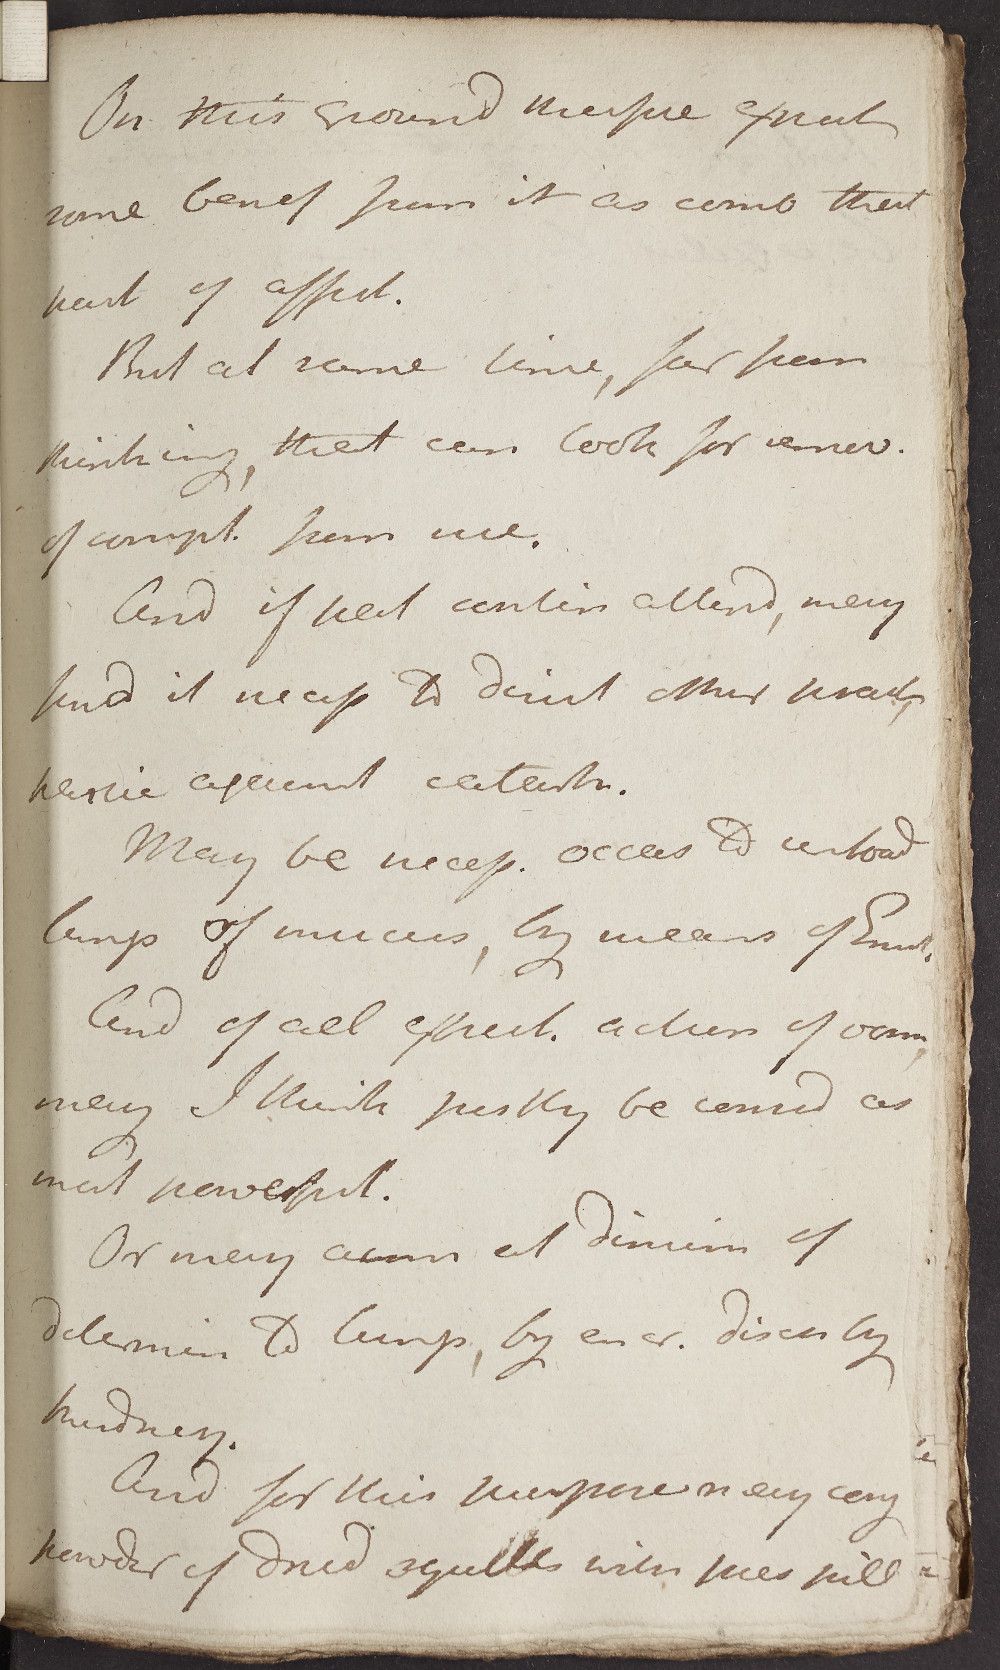 On this Ground therfore expect
some benef from it as comb that
part of affect.
But at same time, far from
thinking, that can look for remov.
of compt. from use.
And if pat contin attend, may
find it necess to direct other pract,
partic against catarrh.
May be necess. occas to unload
lungs of mucus, by means of Emet.
And of all expect. action of vom,
may I think justly be consid as
most powerful.
Or may aim at dimin of
determin to lungs, by incr. disch by
kidney.
And for this purpose may conj
powder of dried squills with pres pill